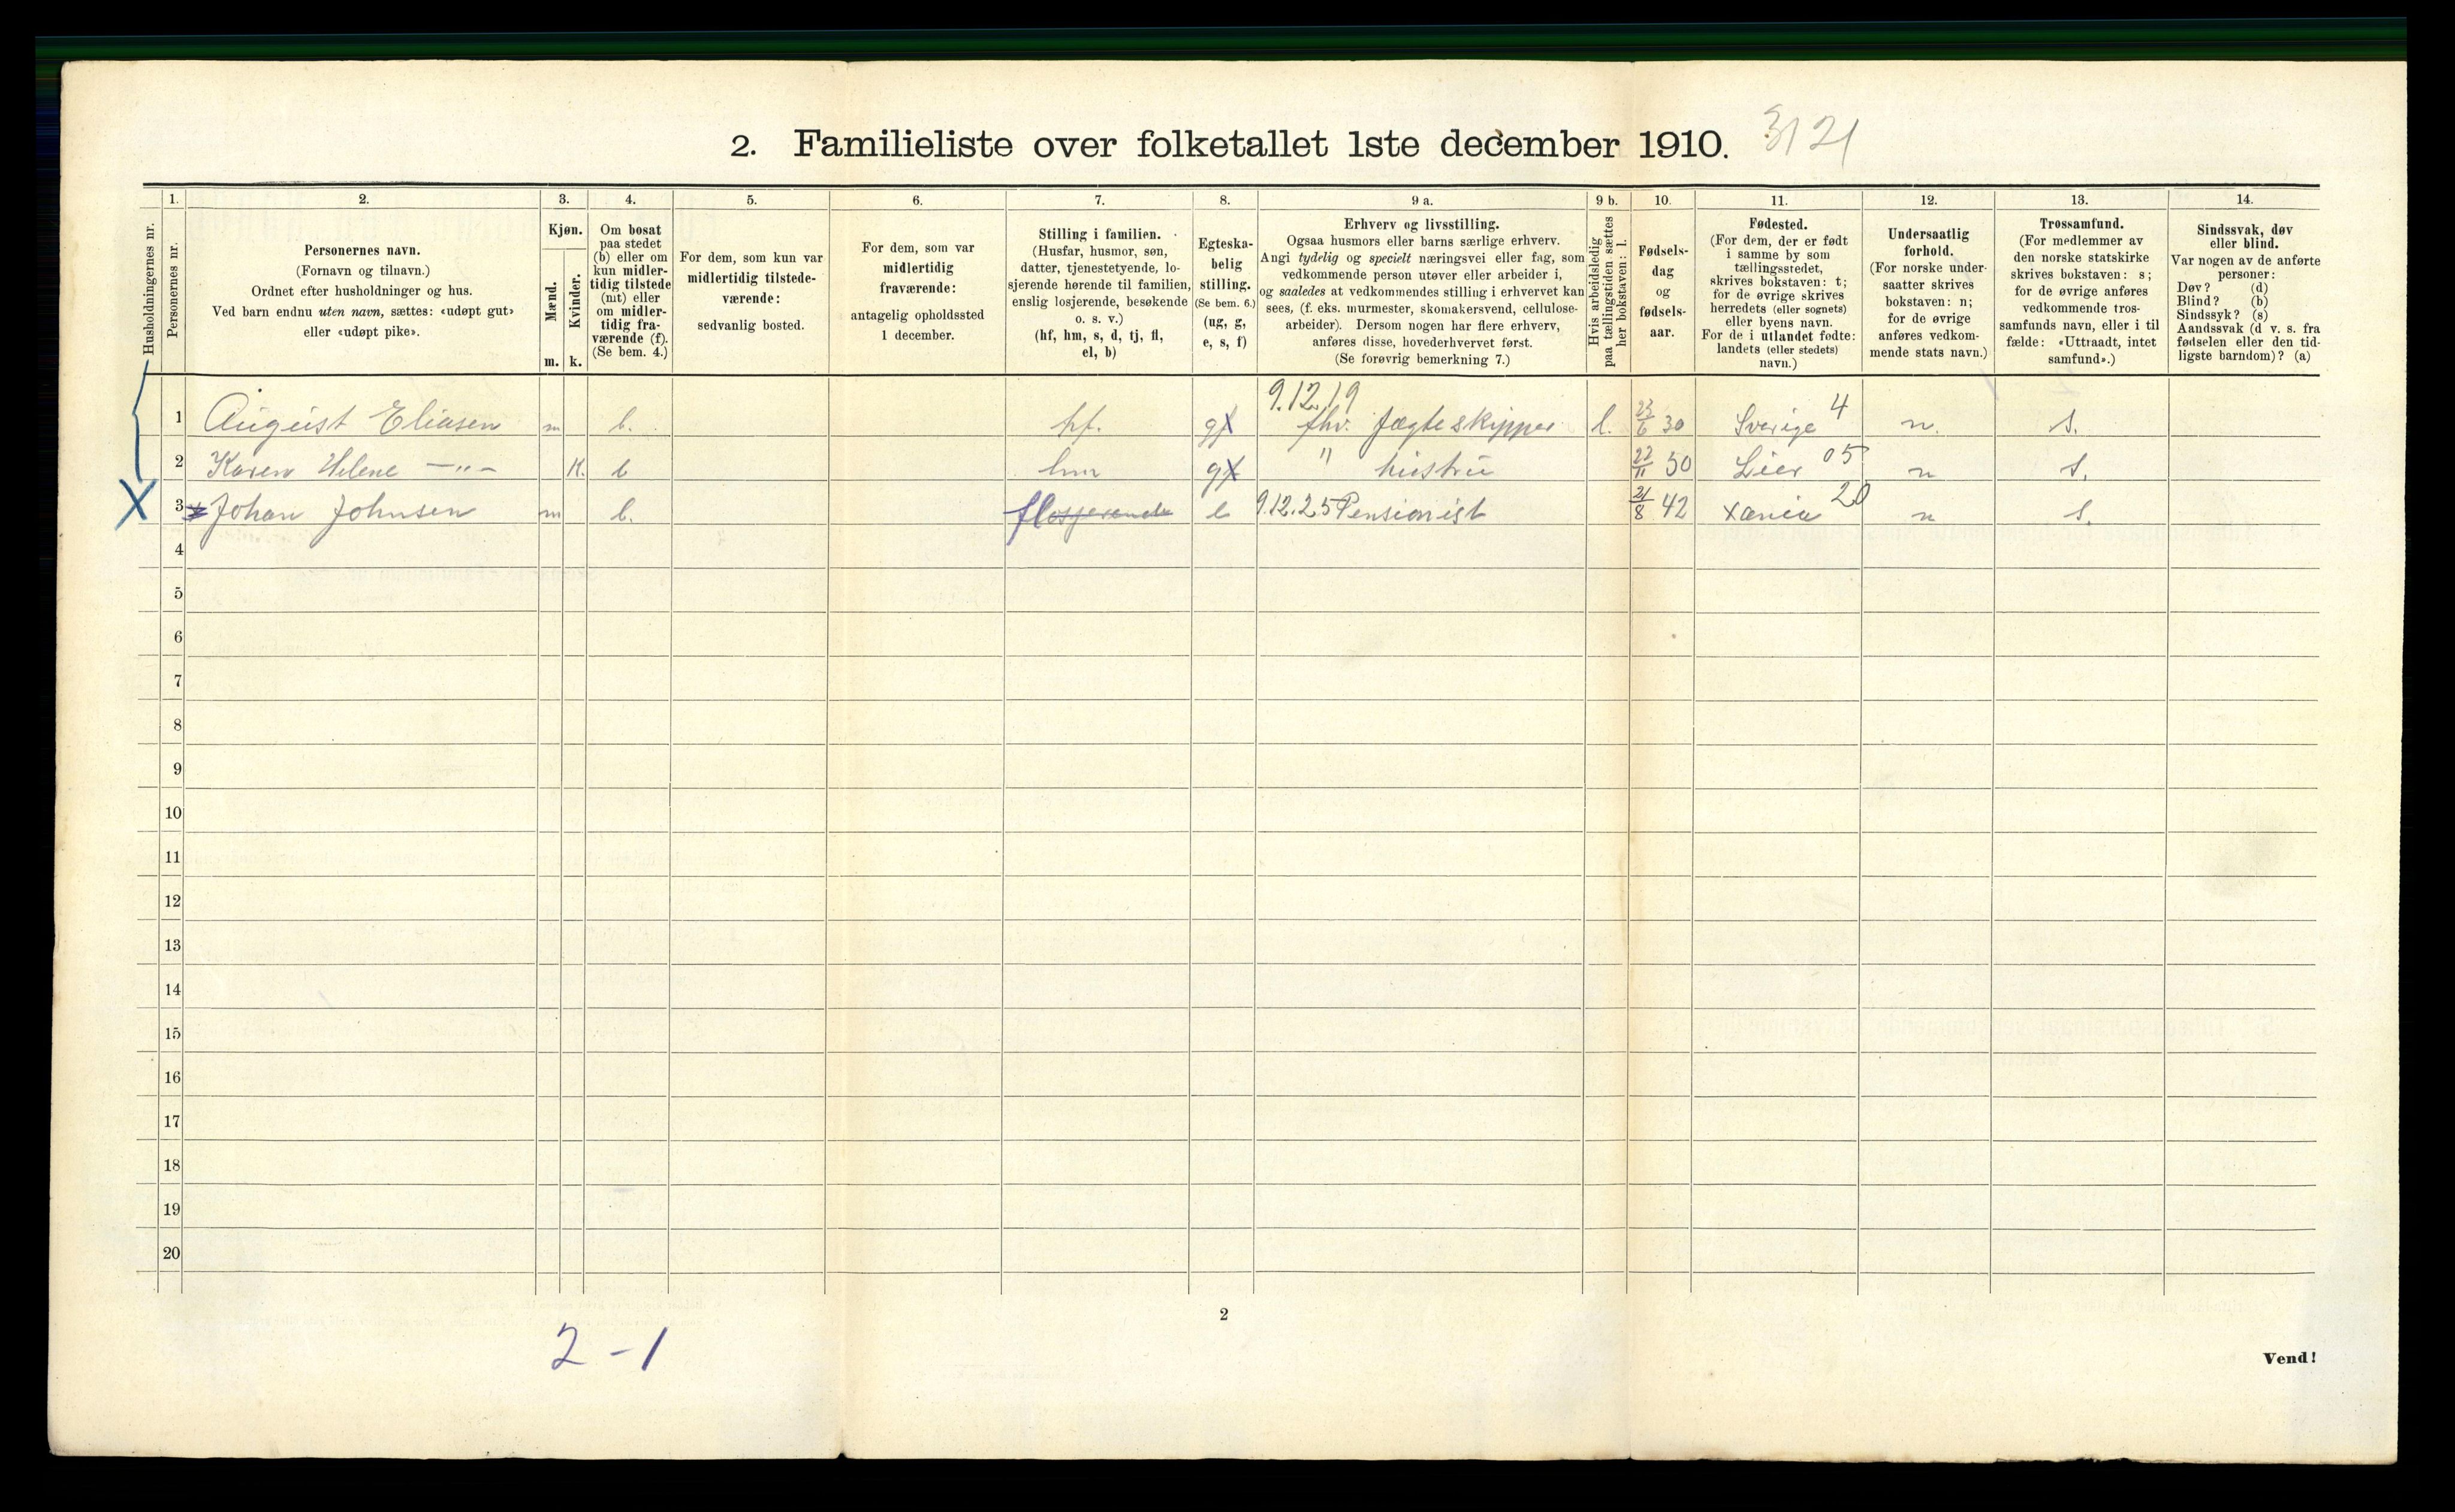 2. Familieliste over folketallet 1ste december 1910. 3121
Husholdningernes nr.
1.
Personernes nr.
2.
Personernes navn.
(Fornavn og tilnavn.)
Ordnet efter husholdninger og hus.
Ved barn endnu uten navn, sættes: «udøpt gut»
eller «udøpt pike».
3.
Kjøn.
Mænd.
m.
Kvinder.
k.
4.
Om bosat
paa stedet
(b) eller om
kun midler-
tidig tilstede
(mt) eller
om midler-
tidig fra-
værende (f).
(Se bem. 4.)
5.
For dem, som kun var
midlertidig tilstede-
værende:
sedvanlig bosted.
6.
For dem, som var
midlertidig
fraværende:
antagelig opholdssted
1 december.
7.
Stilling i familien.
(Husfar, husmor, søn,
datter, tjenestetyende, lo-
sjerende hørende til familien,
enslig losjerende, besøkende
o. s. v.)
(hf, hm, s, d, tj, fl,
el, b)
8.
Egteska-
belig
stilling.
(Se bem. 6.)
(ug, g,
e, s, f)
9 a.
Erhverv og livsstilling.
Ogsaa husmors eller barns særlige erhverv.
Angi tydelig og specielt næringsvei eller fag, som
vedkommende person utøver eller arbeider i,
og saaledes at vedkommendes stilling i erhvervet kan
sees, (f. eks. murmester, skomakersvend, cellulose-
arbeider). Dersom nogen har flere erhverv,
anføres disse, hovederhvervet først.
(Se forøvrig bemerkning 7.)
9 b.
Hvis arbeidsledig
paa tællingstiden sættes
her bokstaven: l.
10.
Fødsels-
dag
og
fødsels-
aar.
11.
Fødested.
(For dem, der er født
i samme by som
tællingsstedet,
skrives bokstaven: t;
for de øvrige skrives
herredets (eller sognets)
eller byens navn.
For de i utlandet fødte:
landets (eller stedets)
navn.)
12.
Undersaatlig
forhold.
(For norske under-
saatter skrives
bokstaven: n;
for de øvrige
anføres vedkom-
mende stats navn.)
13.
Trossamfund.
(For medlemmer av
den norske statskirke
skrives bokstaven: s;
for de øvrige anføres
vedkommende tros-
samfunds navn, eller i til
fælde: «Uttraadt, intet
samfund».)
14.
Sindssvak, døv
eller blind.
Var nogen av de anførte
personer:
Døv? (d)
Blind? (b)
Sindssyk? (s)
Aandssvak (d v. s. fra
fødselen eller den tid-
ligste barndom)? (a)
9.12.19
1 August Eliasen m b. hf. gx fhv. Jægteskipper l. 23/6 30 Sverige 4 n. s.
2 Karen Helene —"— K. b hm gx " hustru 22/11 50 Lier 05 n s.
X 3 Johan Johnsen m b. fl losjerende e 9.12.25 Pensionist 21/8 42 Xania 20 n s.
4
5
6
7
8
9
10
11
12
13
14
15
16
17
18
19
20
2
2 - 1
Vend!